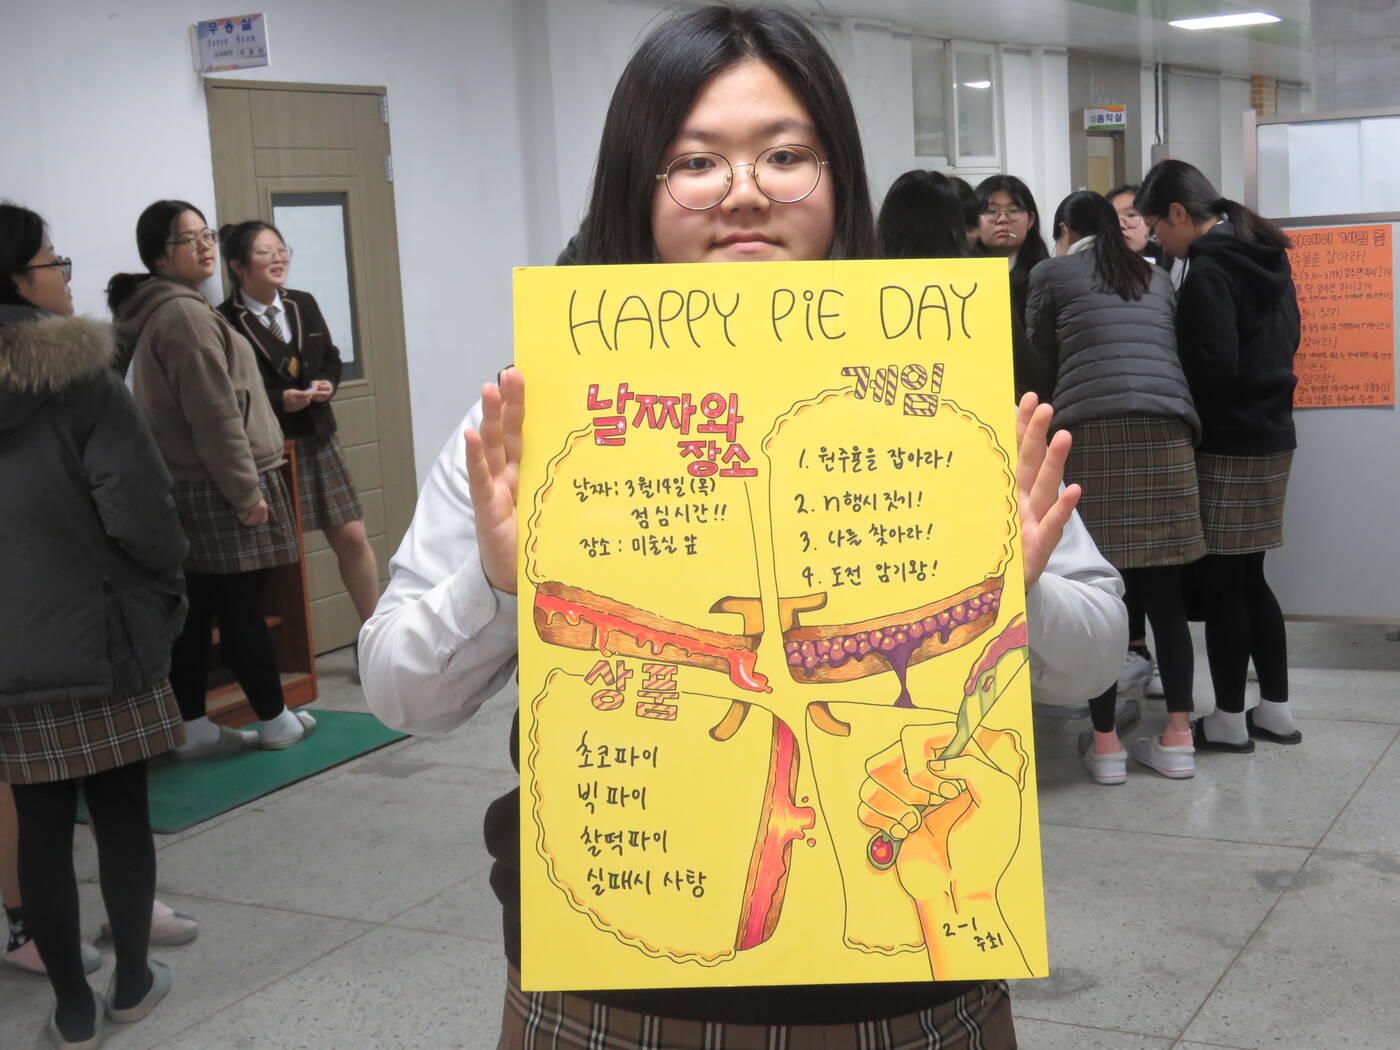 무용실
Dance Room
음악실
HAPPY PiE DAY
날짜와
장소
날짜: 3월14일(목)
점심시간!!
장소: 미술실 앞
게임
1. 원주율을 잡아라!
2. n행시 짓기!
3. 나를 찾아라!
4. 도전 암기왕!
상품
초코파이
빅파이
찰떡파이
실패시 사탕
2-1
주최
게임
잡아라!
짓기
찾아라!
암기왕!